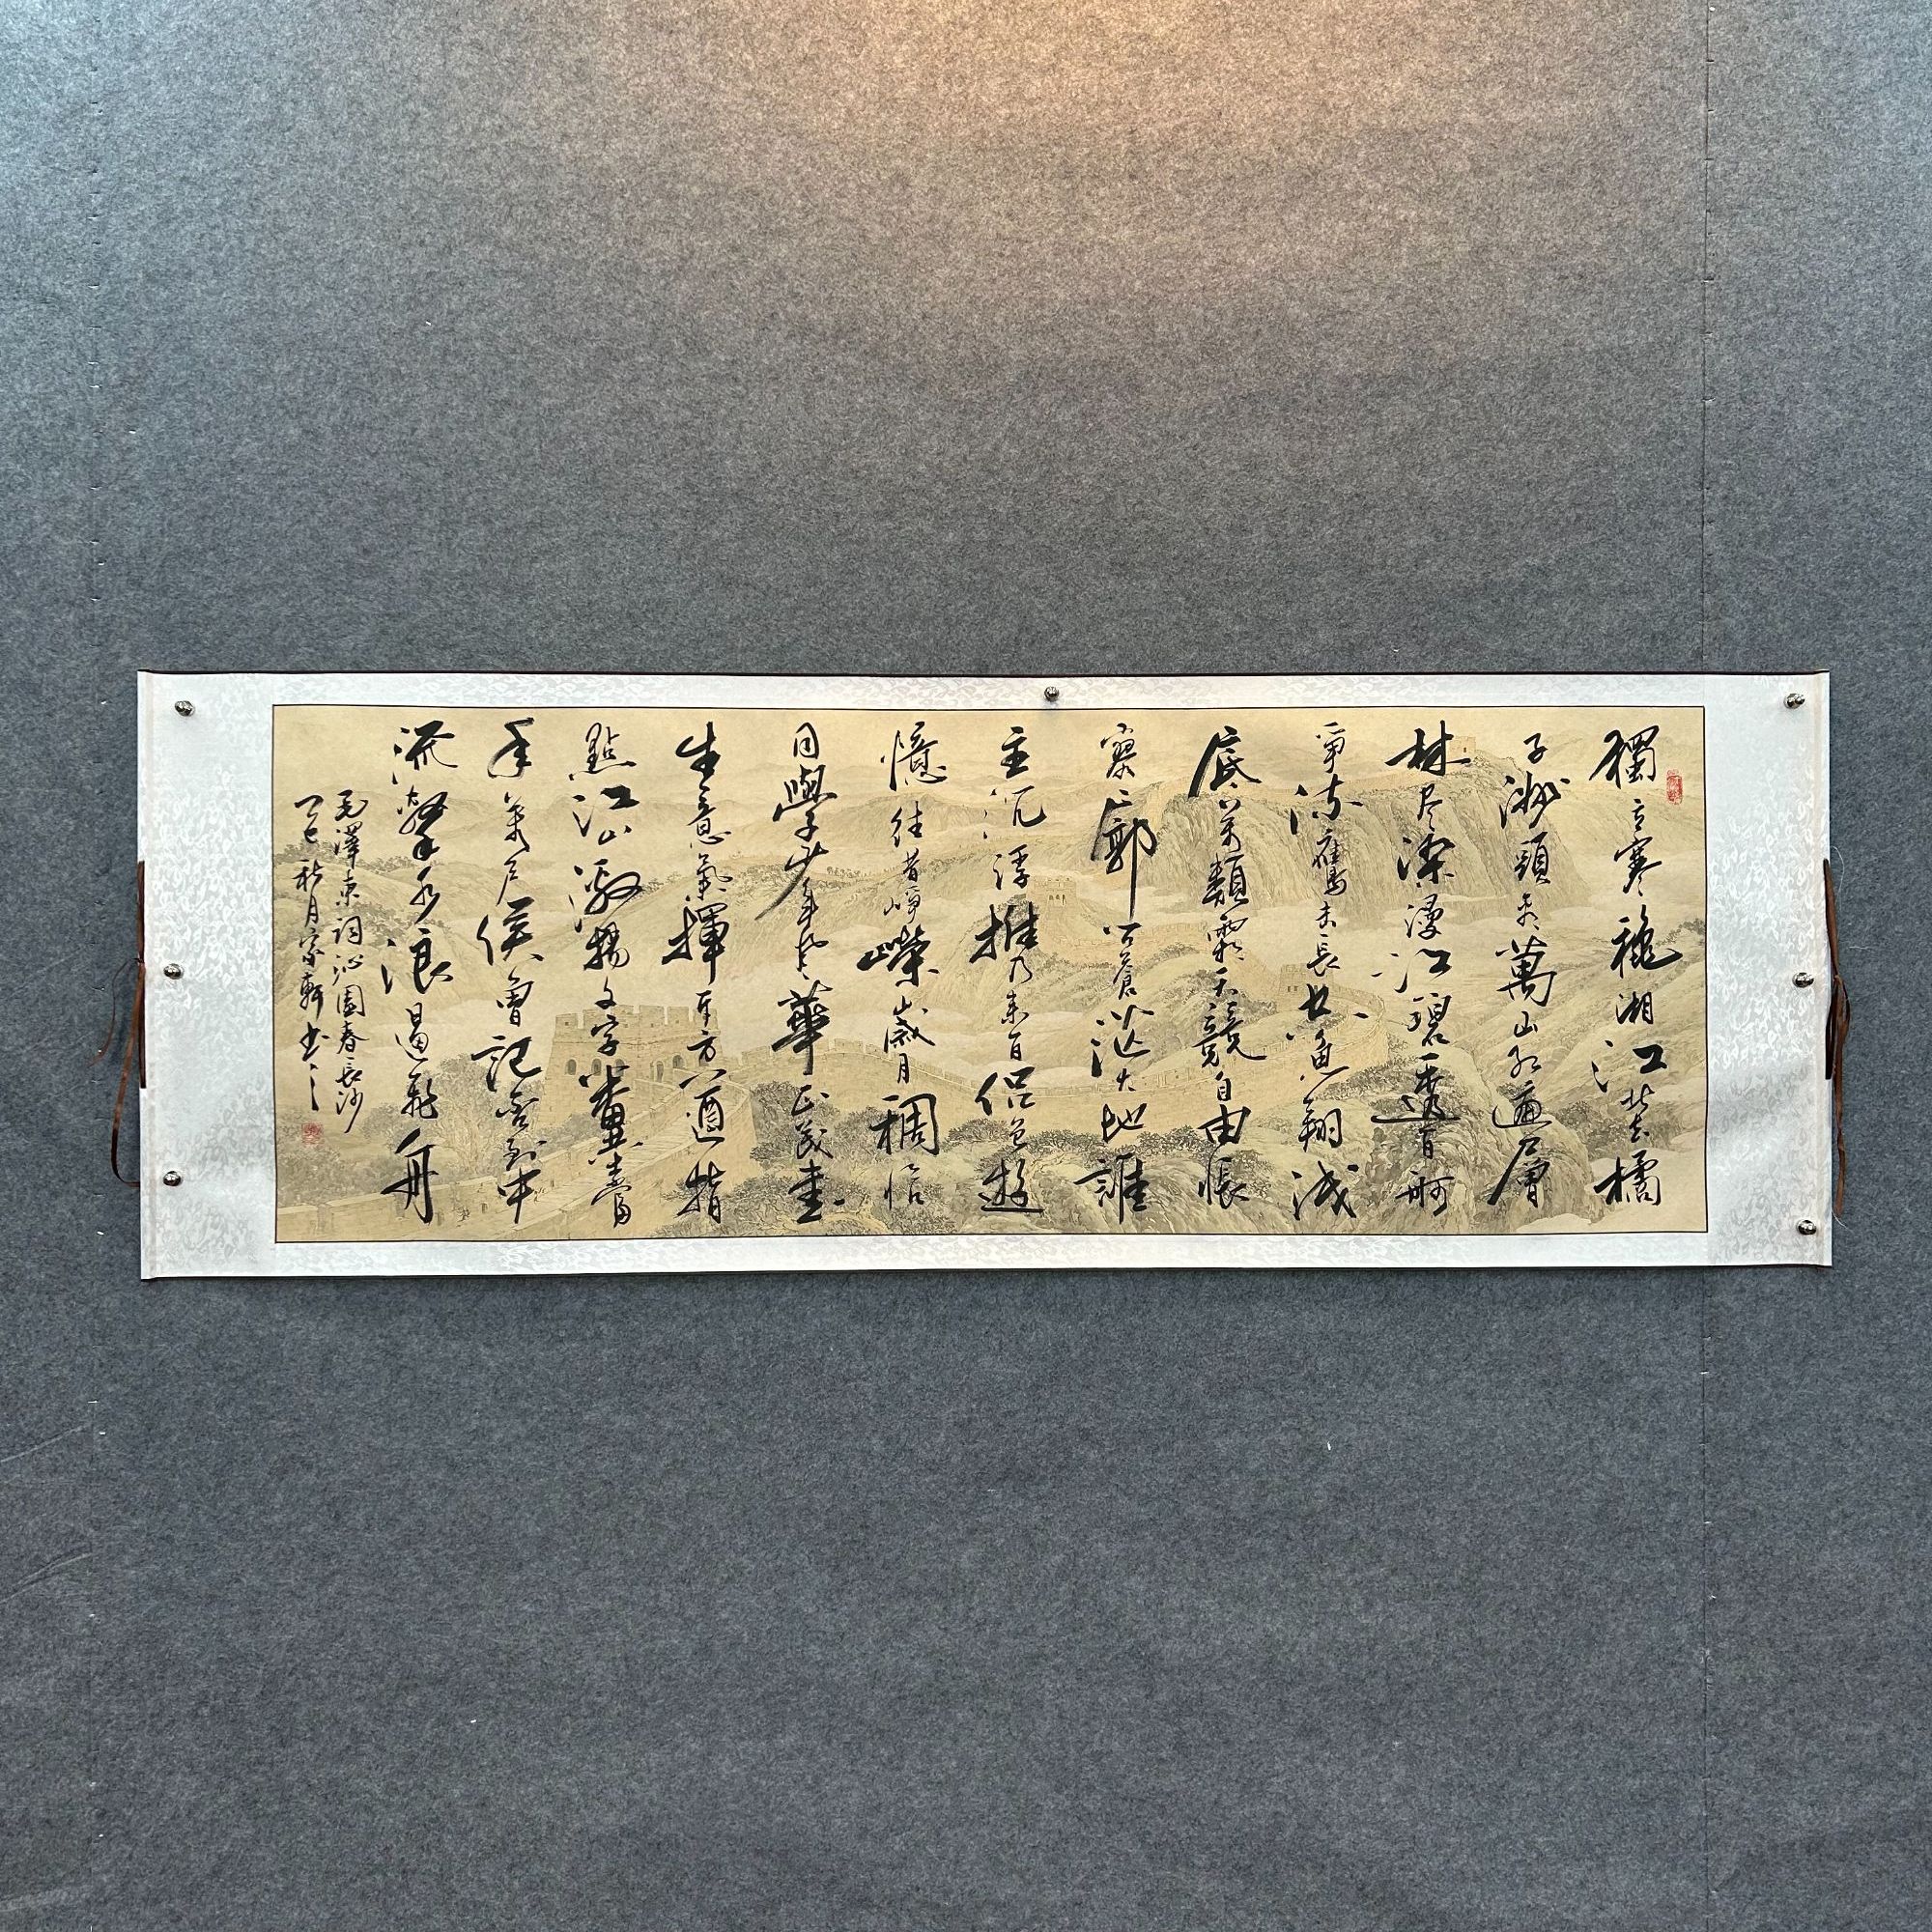 獨立寒穐湘江北去橘
子洲頭看萬山紅遍層
林尽染漫江碧透百舸
爭流鷹击長空魚翔浅
底萬類霜天競自由悵
寥廓问蒼茫大地誰
主沉浮攜来百侣曾遊
憶往昔崢嶸歲月稠恰
同學少年風華正茂書
生意氣揮斥方遒指
點江山激揚文字糞土當
年萬户侯曾記否到中
流擊水浪遏飛舟
毛澤東詞沁園春長沙
丁巳秋月宗軒书之